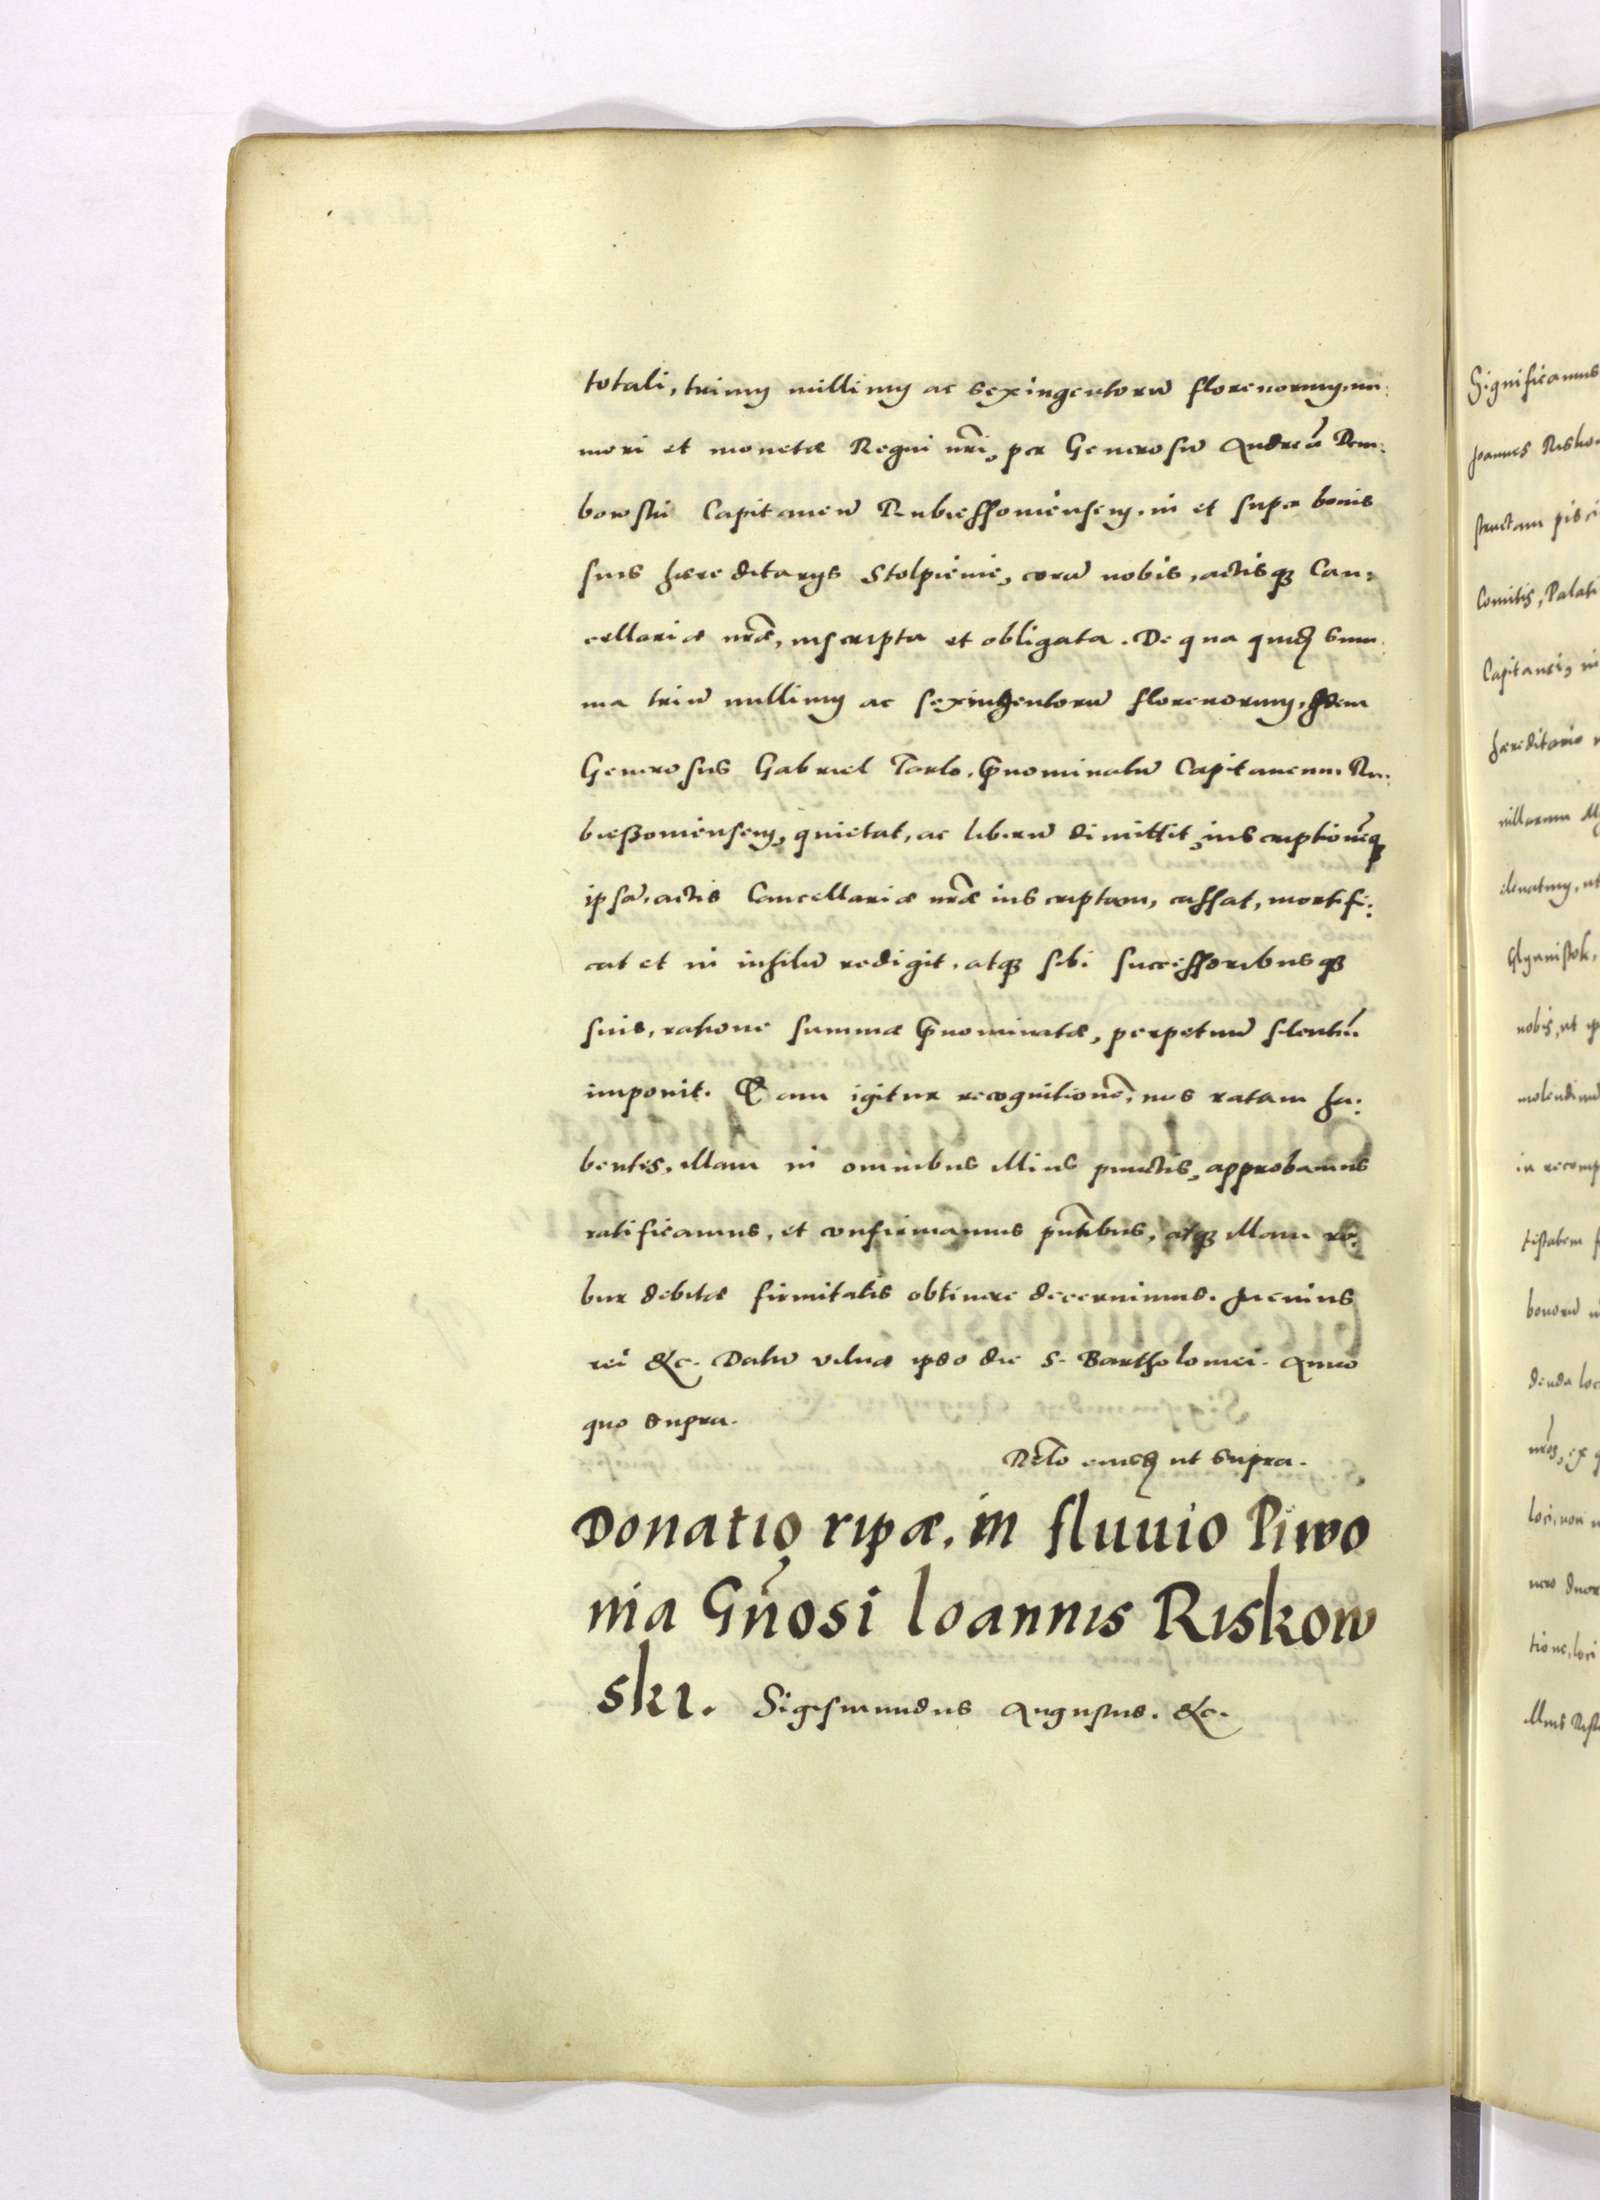 totali, trium millium ac sexingentorū florenorum, nu:
meri et monetæ Regni nr̃i, per Generosū Andreā Dem:
bowski Capitaneū Rubiessouiensem, in et super bonis
suis hæreditarijs Stolpienie, corā nobis, actisq3 Can:
cellariæ nr̃æ, inscripta et obligata. De qua quidē sum
ma triū millium ac sexingentorū florenorum, Idem
Generosus Gabriel Tarlo, p̃nominatū Capitaneum Ru:
bieszouiensem, quietat, ac liberū dimittit, inscriptionēq3
ipsā, actis Cancellariæ nr̃æ inscriptam, cassat, mortifi:
cat et in nihilū redigit, atq3 sibi successoribusq3
suis, ratione summæ p̃nominatæ, perpetuū silentiū
imponit. Quam igitur recognitionē, nos ratam ha:
bentes, illam in omnibus illius punctis, approbamus
ratificamus, et confirmamus pñtibus, atq3 illam ro:
bur debitæ firmitatis obtinere decernimus. In cuius
rei &c. Datū Vilnæ ipso die S. Bartholomei. Anno
quo supra.
Rl̃o eiusd ut supra.
Donatio ripæ, in fluuio Piwo
nia Gñosi Ioannis Riskow
ski. Sigismundus Augustus. &c.
Significamus
Joannes Risko
structam pisci
Comitis, Palati
Capitanei, in
hæreditario
villarum
nobis, ut
molendinū
in recomp
bonorū
denda loc
loci, non
tione, loci